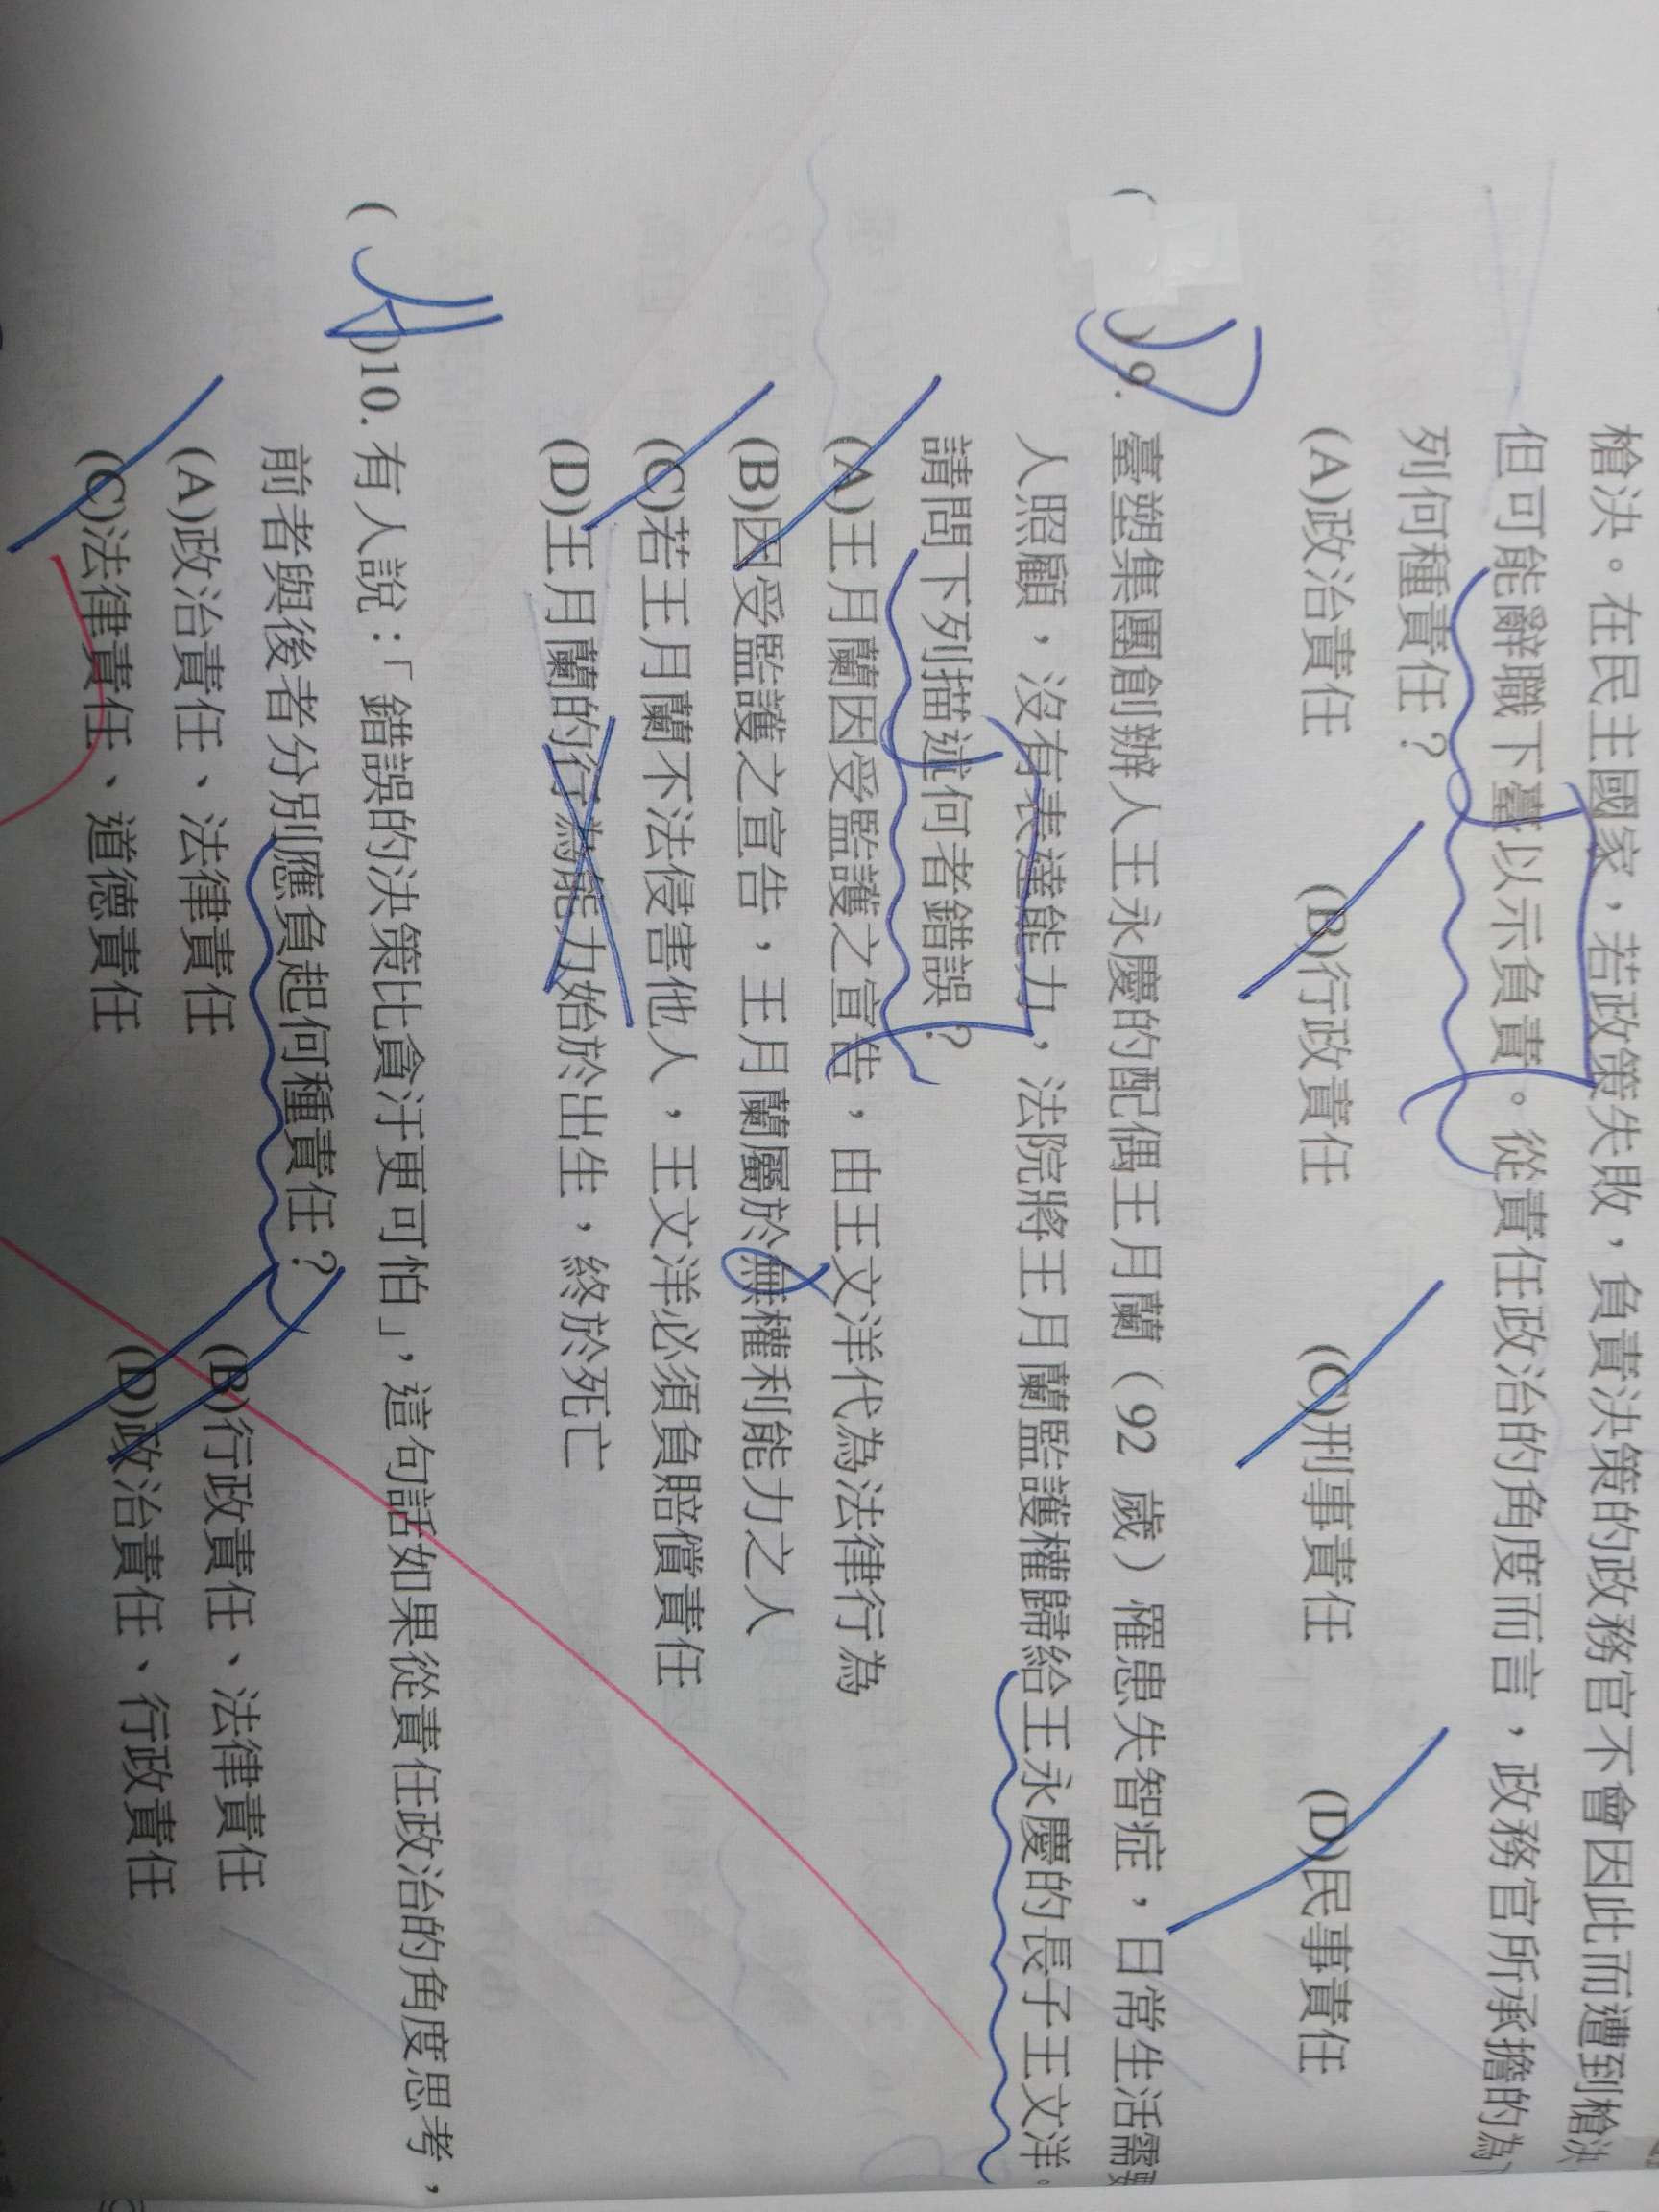 槍決。在民主國家，若政策失敗，負責決策的政務官不會因此而遭到槍決
但可能辭職下臺以示負責。從責任政治的角度而言，政務官所承擔的為
列何種責任？
(A)政治責任 (B)行政責任 (C)刑事責任 (D)民事責任
( )9. 臺塑集團創辦人王永慶的配偶王月蘭（92 歲）罹患失智症，日常生活需要
人照顧，沒有表達能力，法院將王月蘭監護權歸給王永慶的長子王文洋。
請問下列描述何者錯誤？
(A)王月蘭因受監護之宣告，由王文洋代為法律行為
(B)因受監護之宣告，王月蘭屬於無權利能力之人
(C)若王月蘭不法侵害他人，王文洋必須負賠償責任
(D)王月蘭的行為能力始於出生，終於死亡
(A)10. 有人說：「錯誤的決策比貪汙更可怕」，這句話如果從責任政治的角度思考，
前者與後者分別應負起何種責任？
(A)政治責任、法律責任 (B)行政責任、法律責任
(C)法律責任、道德責任 (D)政治責任、行政責任